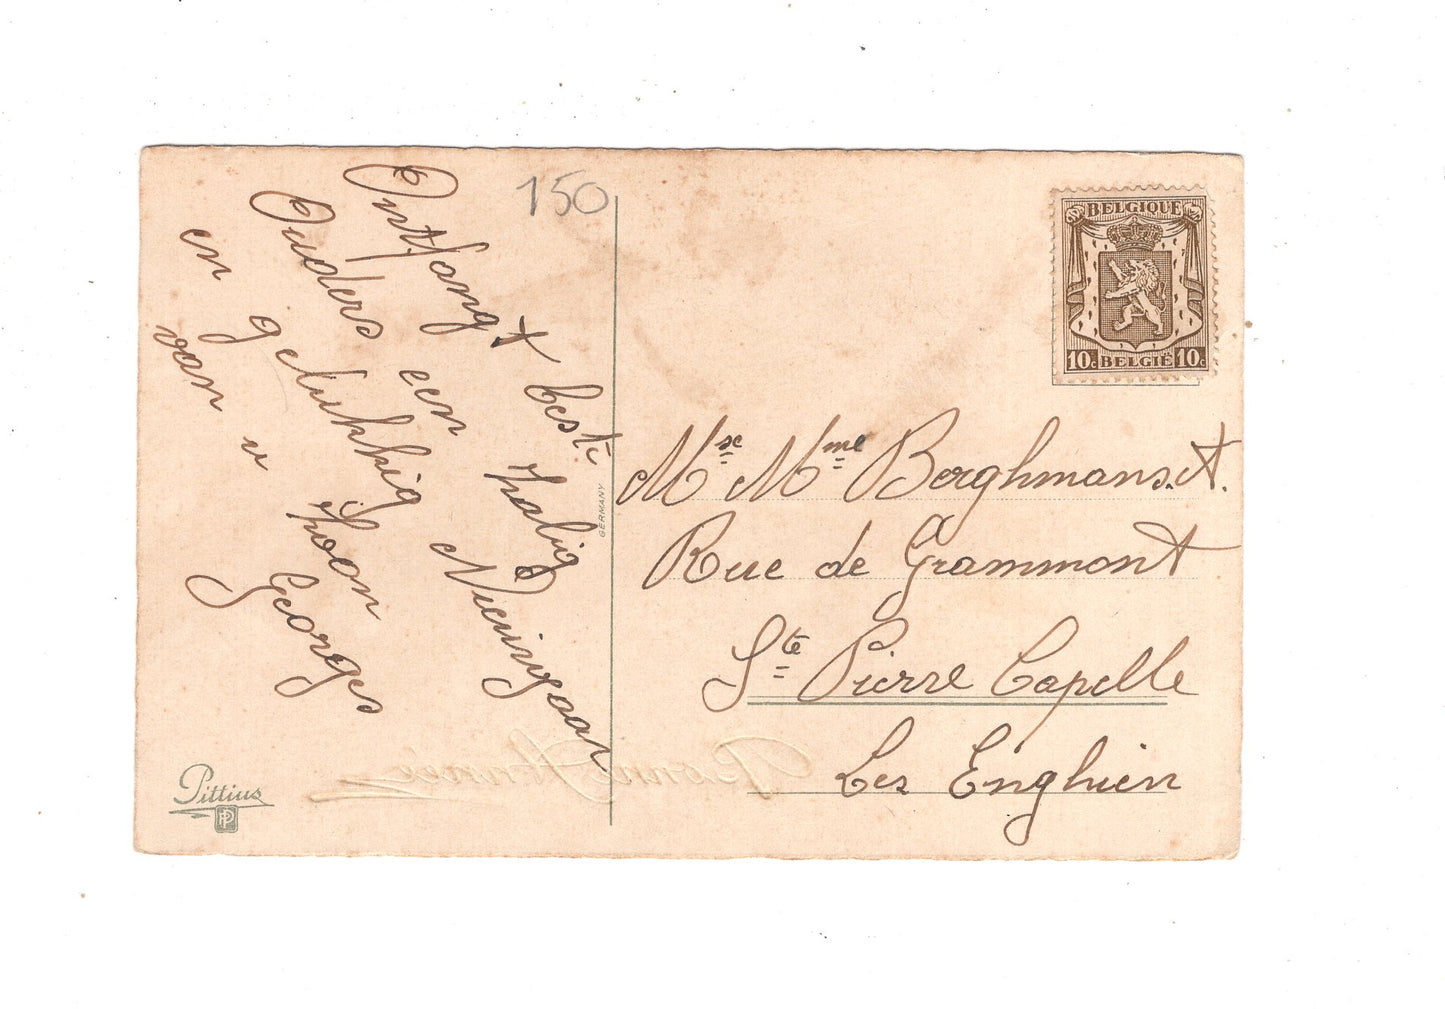 150
Ontfangt best.
Ouders een zalig
en gelukkig Nieuwjaar
van u zoon
Georges
GERMANY
Pittius
PP
Bonne Année
BELGIQUE
10c BELGIË 10c
Mse Mme Berghmans.A.
Rue de Grammont
Ste Pierre Capelle
Lez Enghien